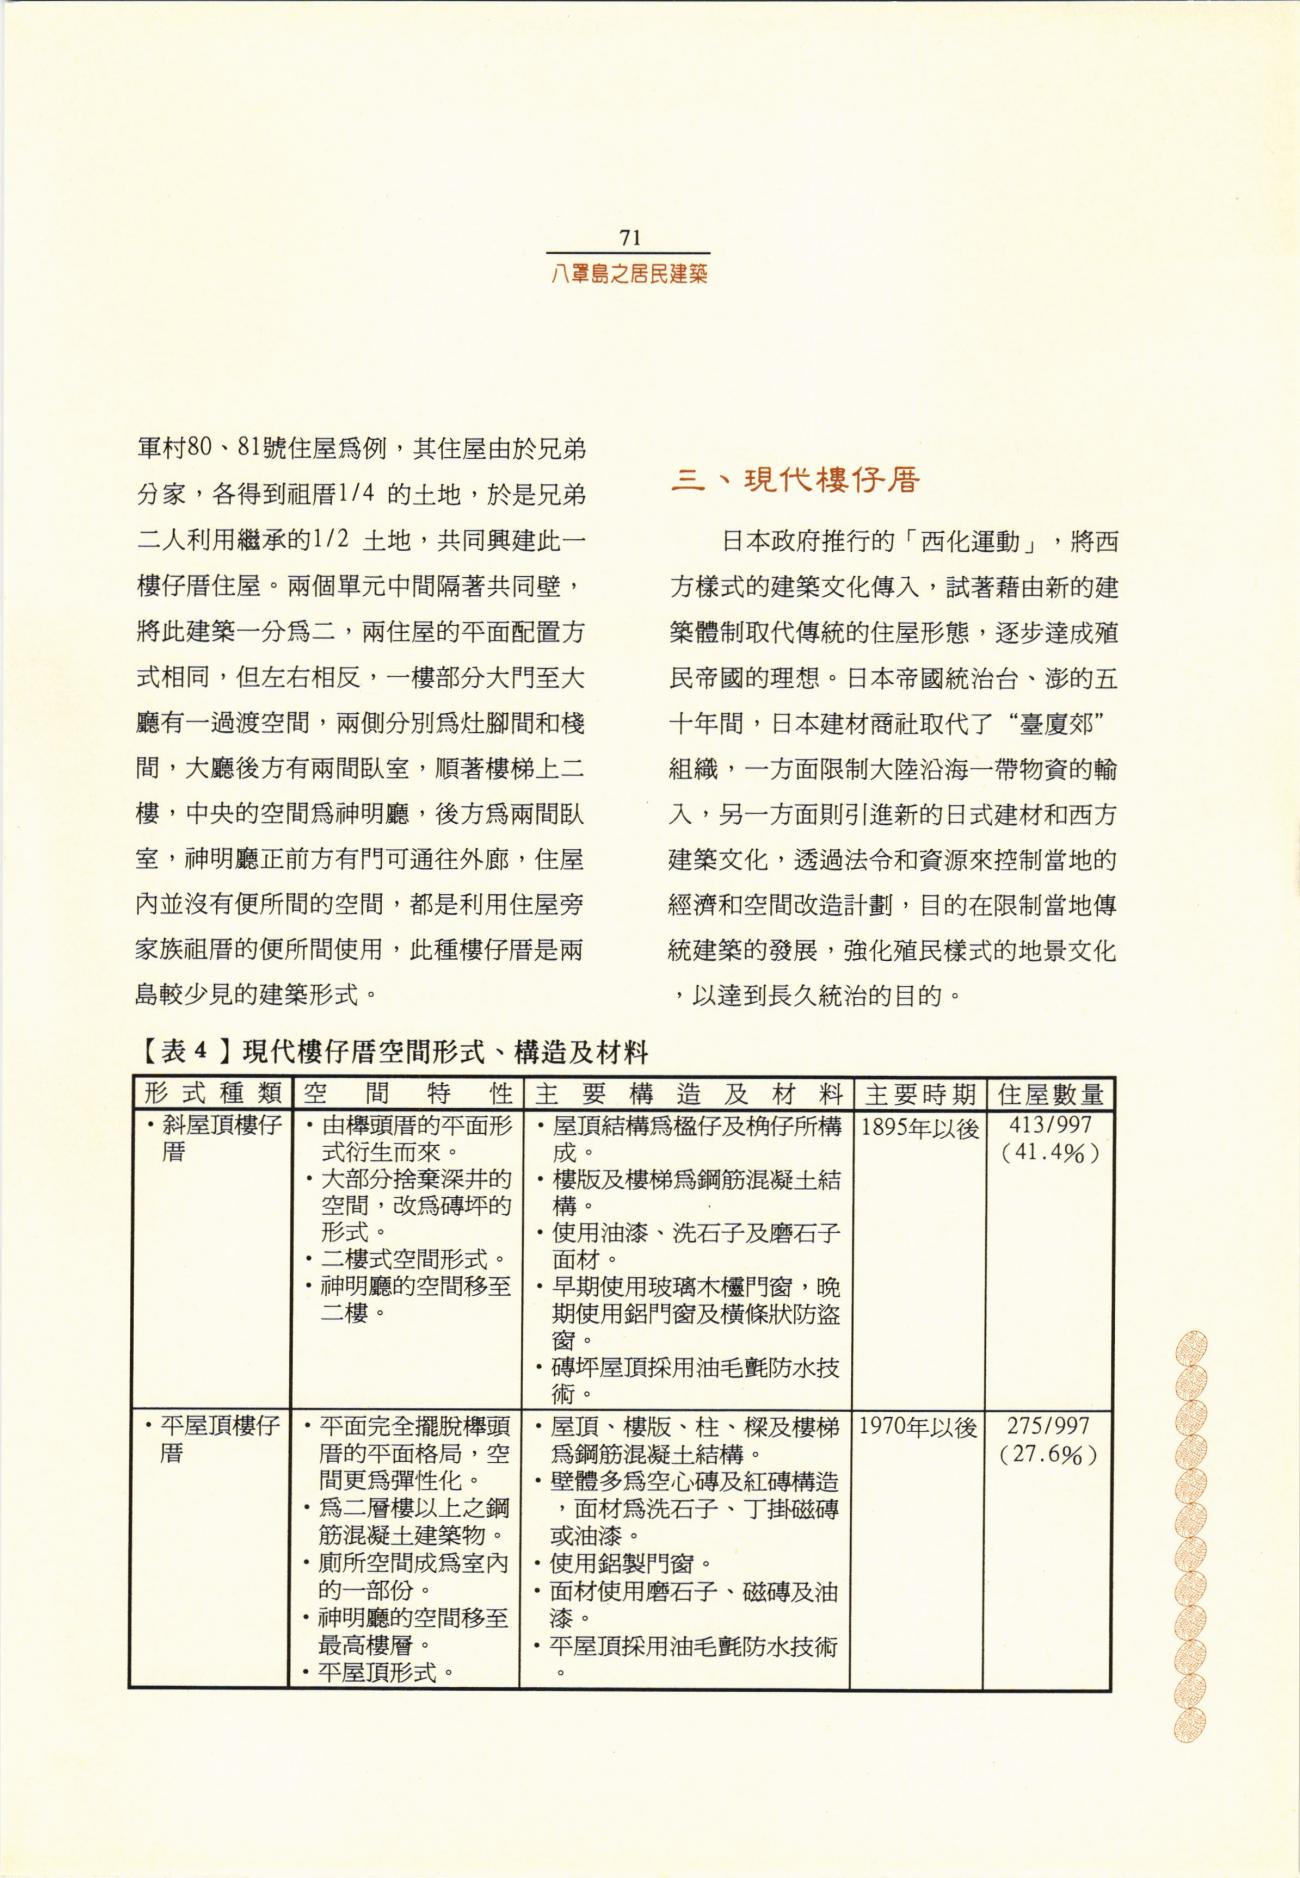 71
八罩島之居民建築
軍村80、81號住屋爲例，其住屋由於兄弟
分家，各得到祖厝1/4 的土地，於是兄弟
二人利用繼承的1/2 土地，共同興建此一
樓仔厝住屋。兩個單元中間隔著共同壁，
將此建築一分爲二，兩住屋的平面配置方
式相同，但左右相反，一樓部分大門至大
廳有一過渡空間，兩側分別爲灶腳間和棧
間，大廳後方有兩間臥室，順著樓梯上二
樓，中央的空間爲神明廳，後方爲兩間臥
室，神明廳正前方有門可通往外廊，住屋
內並沒有便所間的空間，都是利用住屋旁
家族祖厝的便所間使用，此種樓仔厝是兩
島較少見的建築形式。
三、現代樓仔厝
日本政府推行的「西化運動」，將西
方樣式的建築文化傳入，試著藉由新的建
築體制取代傳統的住屋形態，逐步達成殖
民帝國的理想。日本帝國統治台、澎的五
十年間，日本建材商社取代了“臺廈郊”
組織，一方面限制大陸沿海一帶物資的輸
入，另一方面則引進新的日式建材和西方
建築文化，透過法令和資源來控制當地的
經濟和空間改造計劃，目的在限制當地傳
統建築的發展，強化殖民樣式的地景文化
，以達到長久統治的目的。
【表4】現代樓仔厝空間形式、構造及材料
形式種類 空間特性 主要構造及材料 主要時期 住屋數量
・斜屋頂樓仔
厝
・由櫸頭厝的平面形
式衍生而來。
・大部分捨棄深井的
空間，改爲磚坪的
形式。
・二樓式空間形式。
・神明廳的空間移至
二樓。
・屋頂結構爲楹仔及桷仔所構
成。
・樓版及樓梯爲鋼筋混凝土結
構。
・使用油漆、洗石子及磨石子
面材。
・早期使用玻璃木欞門窗，晚
期使用鋁門窗及橫條狀防盜
窗。
・磚坪屋頂採用油毛氈防水技
術。
1895年以後
413/997
(41.4%)
・平屋頂樓仔
厝
・平面完全擺脫櫸頭
厝的平面格局，空
間更爲彈性化。
・爲二層樓以上之鋼
筋混凝土建築物。
・廁所空間成爲室內
的一部份。
・神明廳的空間移至
最高樓層。
・平屋頂形式。
・屋頂、樓版、柱、樑及樓梯
爲鋼筋混凝土結構。
・壁體多爲空心磚及紅磚構造
，面材爲洗石子、丁掛磁磚
或油漆。
・使用鋁製門窗。
・面材使用磨石子、磁磚及油
漆。
・平屋頂採用油毛氈防水技術
。
1970年以後
275/997
(27.6%)